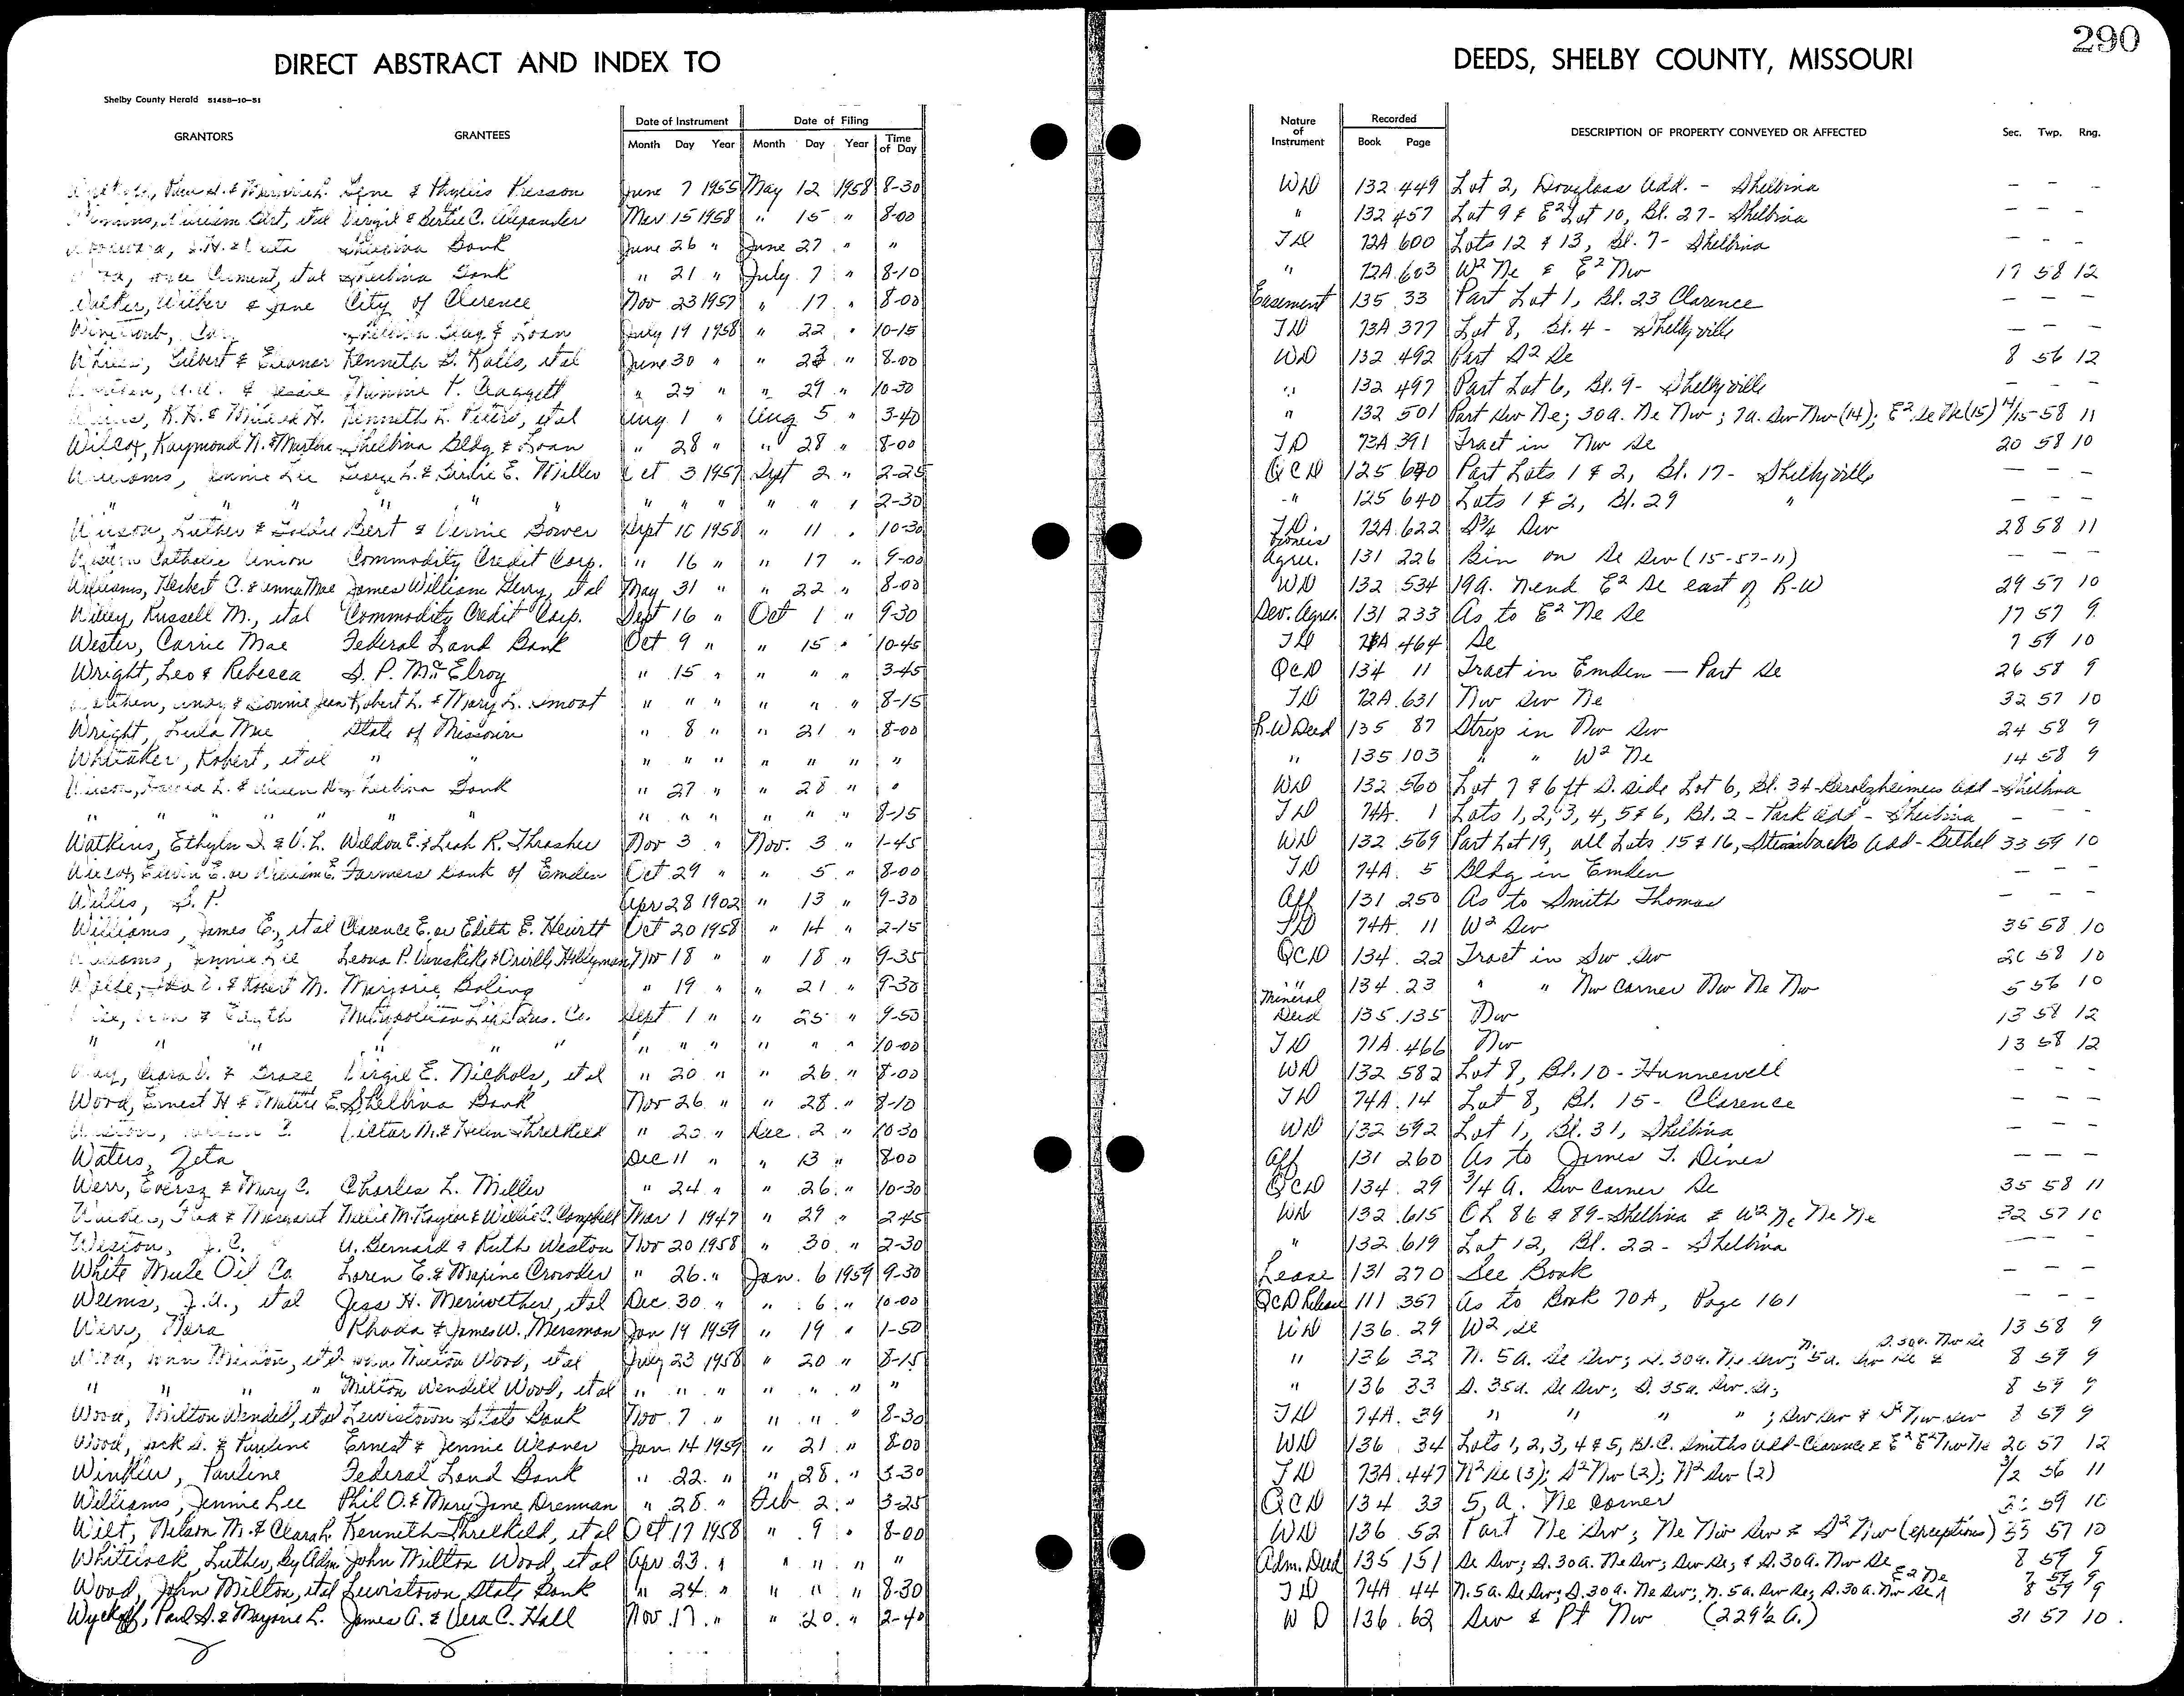 290
DIRECT ABSTRACT AND INDEX TO DEEDS, SHELBY COUNTY, MISSOURI
Shelby County Herald 51458-10-51
GRANTORS GRANTEES Date of Instrument Month Day Year Date of Filing Month Day Year Time of Day Nature of Instrument Recorded Book Page DESCRIPTION OF PROPERTY CONVEYED OR AFFECTED Sec. Twp. Rng.
Gene & Phyllis Presson June 7 1955 May 12 1958 8-30 WD 132 449 Lot 2, Douglass Add. - Shelbina — — —
Virgil & Bertie C. Alexander Mar 15 1958 " 15 " 8-00 " 132 457 Lot 9 & E² Lot 10, Bl. 27 - Shelbina — — —
Shelbina Bank June 26 " June 27 " " TD 72A 600 Lots 12 & 13, Bl. 7 - Shelbina — — —
et al Shelbina Bank " 21 " July 7 " 8-10 " 72A 603 W² Ne & E² Nw 17 58 12
Walker, Wilber & Jane City of Clarence Nov 23 1957 " 17 " 8-00 Easement 135 33 Part Lot 1, Bl. 23 Clarence — — —
Shelbina Bldg & Loan July 19 1958 " 22 " 10-15 TD 73A 377 Lot 8, Bl. 4 - Shelbyville — — —
Gilbert & Eleanor Kenneth G. Kalls, et al June 30 " " 8-00 WD 132 492 Part S² Se 8 56 12
Minnie P. Claggett " 25 " " 29 " 10-30 " 132 497 Part Lot 6, Bl. 9 - Shelbyville — — —
Kenneth L. Peters, et al Aug 1 " Aug 5 " 3-40 " 132 501 Part Sw Ne; 30a. Ne Nw; 7a. Sw Nw (14); E² Se Ne (15) 14/15-58 11
Wilcox, Raymond N. & Martha Shelbina Bldg & Loan " 28 " " 28 " 8-00 TD 73A 391 Tract in Nw Se 20 58 10
Williams, Jennie Lee George L. & Birdie E. Miller Oct 3 1957 Sept 2 " 2-25 QCD 125 640 Part Lots 1 & 2, Bl. 17 - Shelbyville — — —
" " " " " " " " " " 2-30 " 125 640 Lots 1 & 2, Bl. 29 " — — —
Wilson, Luther & Goldie Bert & Vernie Bower Sept 10 1958 " 11 " 10-30 TD 72A 622 S¾ Sw 28 58 11
Western Catholic Union Commodity Credit Corp. " 16 " " 17 " 9-00 Agree. 131 226 Bin on Se Sw (15-57-11) — — —
Williams, Herbert C. & Anna Mae James William Henry, et al May 31 " " 22 " 8-00 WD 132 534 19a. N end E² Se east of R-W 29 57 10
Willey, Russell M., et al Commodity Credit Corp. Sept 16 " Oct 1 " 9-30 Sev. Agree. 131 233 As to E² Ne Se 17 57 9
Wester, Carrie Mae Federal Land Bank Oct 9 " " 15 " 10-45 TD 464 Se 7 59 10
Wright, Leo & Rebecca S. P. McElroy " 15 " " " " 3-45 QCD 134 11 Tract in Emden — Part Se 26 58 9
Robert L. & Mary L. Smoot " " " " " " 8-15 TD 72A 631 Nw Sw Ne 32 57 10
Wright, Lula Mae State of Missouri " 8 " " 21 " 8-00 R-W Deed 135 87 Strip in Nw Sw 24 58 9
Whitaker, Robert, et al " " " " " " " " " " 135 103 " " W² Ne 14 58 9
Shelbina Bank " 27 " " 28 " " WD 132 560 Lot 7 & 6 ft S. side Lot 6, Bl. 34 - Gerolzheimers Add - Shelbina
" " " " " " " " " " 8-15 TD 74A 1 Lots 1, 2, 3, 4, 5 & 6, Bl. 2 - Park Add - Shelbina — —
Watkins, Ethyln I. & V. L. Weldon E. & Leah R. Thrasher Nov 3 " Nov. 3 " 1-45 WD 132 569 Part Lot 19, all Lots 15 & 16, Steinbachs Add - Bethel 33 59 10
Farmers Bank of Emden Oct 29 " " 5 " 8-00 TD 74A 5 Bldg in Emden — — —
Willis, S. P. Apr 28 1902 " 13 " 9-30 Aff 131 250 As to Smith Thomas — — —
Williams, James E., et al Clarence E. or Edith E. Hewitt Oct 20 1958 " 14 " 2-15 TD 74A 11 W² Sw 35 58 10
Williams, Jennie Lee Leona P. Vanskike & Orville Hollyman Nov 18 " " 18 " 9-35 QCD 134 22 Tract in Sw Sw 58 10
Marjorie Boling " 19 " " 21 " 9-30 " 134 23 " " Nw corner Nw Ne Nw 5 56 10
Metropolitan Life Ins. Co. Sept 1 " " 25 " 9-50 Mineral Deed 135 135 Nw 13 58 12
" " " " " " " " " " " " 10-00 TD 71A 466 Nw 13 58 12
Virgil E. Nichols, et al " 20 " " 26 " 8-00 WD 132 582 Lot 8, Bl. 10 - Hunnewell — — —
Wood, Ernest H & Mattie E. Shelbina Bank Nov 26 " " 28 " 8-10 TD 74A 14 Lot 8, Bl. 15 - Clarence — — —
Victor M. & Helen Threlkeld " 20 " Dec. 2 " 10-30 WD 132 592 Lot 1, Bl. 31, Shelbina — — —
Waters, Zeta Dec 11 " " 13 " 8-00 Aff 131 260 As to James T. Dines — — —
Werr, & Mary C. Charles L. Miller " 24 " " 26 " 10-30 QCD 134 29 3/4 a. Sw corner Se 35 58 11
Nellie M. Kaylor & Willie C. Campbell Mar 1 1947 " 29 " 2-45 WD 132 615 OL 86 & 89 - Shelbina & W² Ne Ne Ne 32 57 10
Weston, J. C. U. Bernard & Ruth Weston Nov 20 1958 " 30 " 2-30 " 132 619 Lot 12, Bl. 22 - Shelbina — — —
White Mule Oil Co Loren E. & Maxine Crowder " 26 " Jan. 6 1959 9-30 Lease 131 270 See Book — — —
Weems, J. A., et al Jess H. Meriwether, et al Dec. 30 " " 6 " 10-00 QCD Release 111 357 As to Book 70A, Page 161 — — —
Werr, Rhoda & James W. Mersman Jan 19 1959 " 19 " 1-50 WD 136 29 W² Se 13 58 9
July 23 1958 " 20 " 8-15 " 136 32 N. 5a. Se Sw; S. 30a. Ne Sw; N. 5a. Sw Se & S. 30a. Nw Se 8 59 9
" " " " Milton Wendell Wood, et al " " " " " " " " 136 33 S. 35a. Se Sw; S. 35a. Sw Se; 8 59 9
Wood, Milton Wendell, et al Lewistown State Bank Nov 7 " " " " 8-30 TD 74A 39 " " " " ; Sw Sw & S² Nw Sw 8 59 9
Wood, Jack S. & Pauline Ernest & Jennie Weaver Jan 14 1959 " 21 " 8-00 WD 136 34 Lots 1, 2, 3, 4 & 5, Bl. C. Smiths Add - Clarence & E² E² Nw Ne 20 57 12
Winkler, Pauline Federal Land Bank " 22 " " 28 " 3-30 TD 73A 447 N² Se (3); S² Nw (2); N² Sw (2) 3/2 56 11
Williams, Jennie Lee Phil O. & Mary Jane Drennan " 28 " Feb 2 " 3-25 QCD 134 33 5 a. Ne corner 59 10
Wilt, Nelson M. & Clara L. Kenneth Threlkeld, et al Oct 17 1958 " 9 " 8-00 WD 136 52 Part Ne Sw; Ne Nw Sw & S² Nw (exceptions) 57 10
Whitelock, Luther, by Adm John Milton Wood, et al Apr 23 " " " " " Adm. Deed 135 151 Se Sw; S. 30a. Ne Sw; Sw Se; & S. 30a. Nw Se 8 59 9
Wood, John Milton, et al Lewistown State Bank " 24 " " " " 8-30 TD 74A 44 N. 5a. Se Sw; S. 30a. Ne Sw; N. 5a. Sw Se; S. 30a. Nw Se E² Ne 7 59 9 8 59 9
Wyckoff, Paul S. & Marjorie L. James A. & Vera C. Hall Nov 17 " " 20 " 2-40 WD 136 62 Sw & Pt Nw (229½ a.) 31 57 10